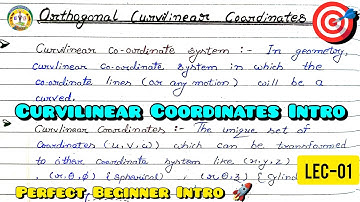 Orthogonal Curvilinear Coordinates
Curvilinear co-ordinate system :- In geometry,
curvilinear co-ordinate system in which the
co-ordinate lines (or any motion) will be a
curved.
CURVILINEAR COORDINATES INTRO
Curvilinear Coordinates :- The unique set of
Coordinates (u,v,w) which can be transformed
to other coordinate system like (x,y,z)
, (r,θ,φ) {spherical} , (r,θ,z) {Cylind
LEC-01
PERFECT BEGINNER INTRO